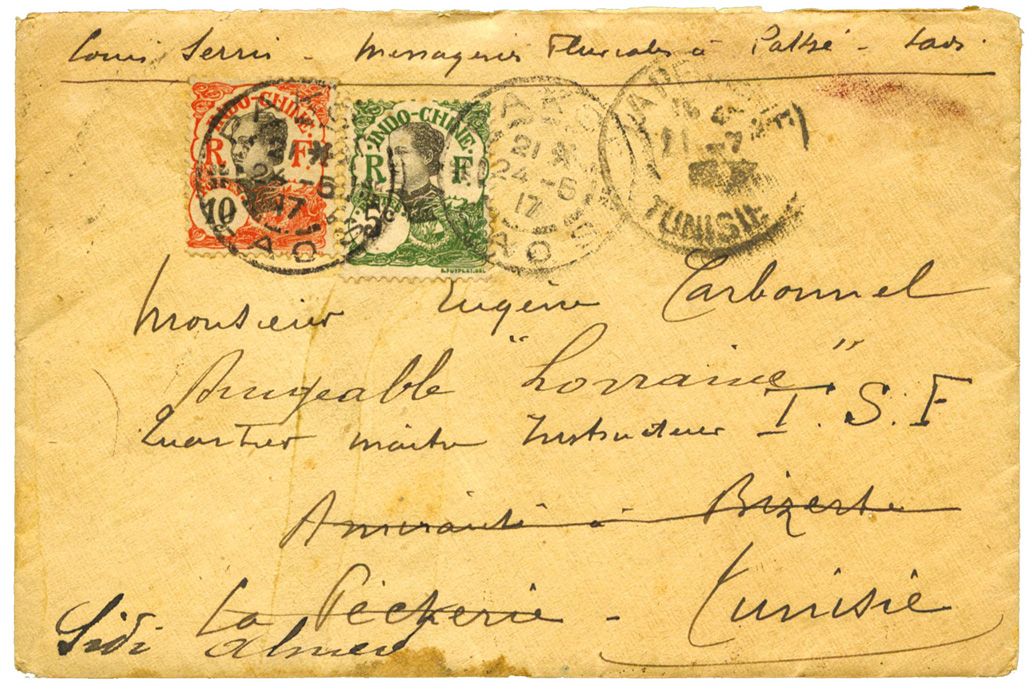 Louis Serris - Messageries Fluviales à Paksé - Laos
INDO-CHINE
R F
10
INDO-CHINE
R F
5
PAKSÉ
21 *
24 - 5
17
LAOS
TUNISIE
Monsieur Eugène Carbonnel
"Lorraine"
Quartier maître Instructeur T. S. F
Amirauté à Bizerte
La Pêcherie - Tunisie
Sidi